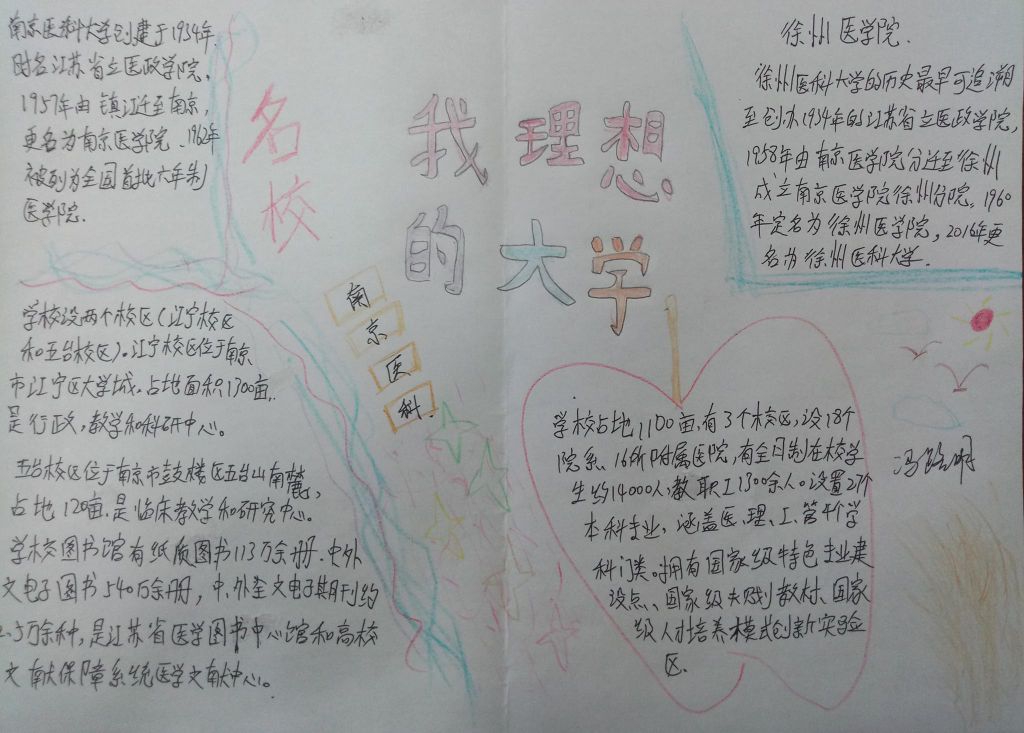 南京医科大学创建于1934年.
时名江苏省立医政学院.
1957年由镇江迁至南京,
更名为南京医学院、1962年
被列为全国首批六年制
医学院.
名校
我理想
的大学
南京医科.
徐州医学院.
徐州医科大学的历史最早可追溯
至创办1934年的江苏省立医政学院,
1958年由南京医学院分迁至徐州
成立南京医学院徐州分院。1960
年定名为徐州医学院,2016年更
名为徐州医科大学.
学校设两个校区(江宁校区
和五台校区)。江宁校区位于南京
市江宁区大学城.占地面积1300亩.
是行政,教学和科研中心。
五台校区位于南京市鼓楼区五台山南麓,
占地120亩.是临床教学和研究中心。
学校图书馆有纸质图书113万余册.中外
文电子图书540万余册,中、外全文电子期刊约
万余种,是江苏省医学图书中心馆和高校
文献保障系统医学文献中心。
学校占地1100亩,有3个校区,设18个
院系、16所附属医院,有全日制在校学
生约14000人,教职工1300余人。设置27个
本科专业,涵盖医、理、工、管4个学
科门类。拥有国家级特色专业建
设点、国家级规划教材、国家
级人才培养模式创新实验
区.
冯